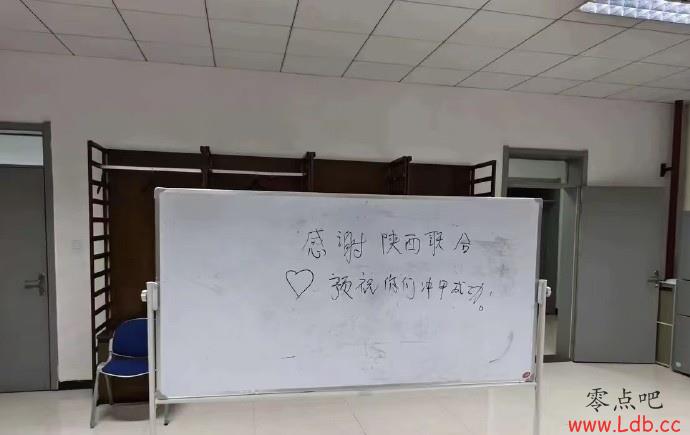 感谢陕西联合
♡ 预祝你们冲甲成功。
零点吧
www.Ldb.cc